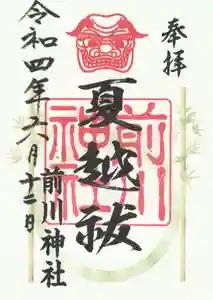 奉拝
夏越祓
前川神社
令和四年六月十二日
前川神社